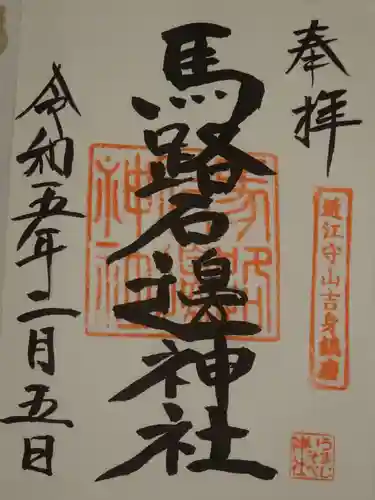 奉拝
近江守山吉身鎮座
馬路石邊神社
馬路石邊神社
うまじ
いそべ
神社
令和五年二月五日